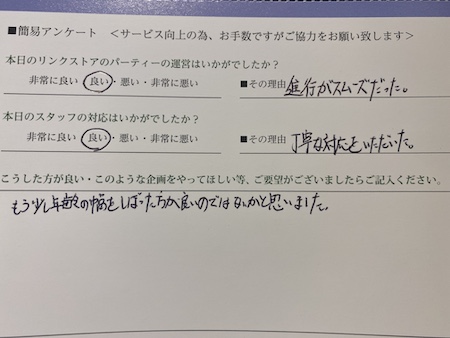 ■簡易アンケート <サービス向上の為、お手数ですがご協力をお願い致します>
本日のリンクストアのパーティーの運営はいかがでしたか?
非常に良い・良い・悪い・非常に悪い ■その理由 進行がスムーズだった。
本日のスタッフの対応はいかがでしたか?
非常に良い・良い・悪い・非常に悪い ■その理由 丁寧な対応をいただいた。
こうした方が良い・このような企画をやってほしい等、ご要望がございましたらご記入ください。
もう少し年齢の幅をしぼった方が良いのではないかと思いました。